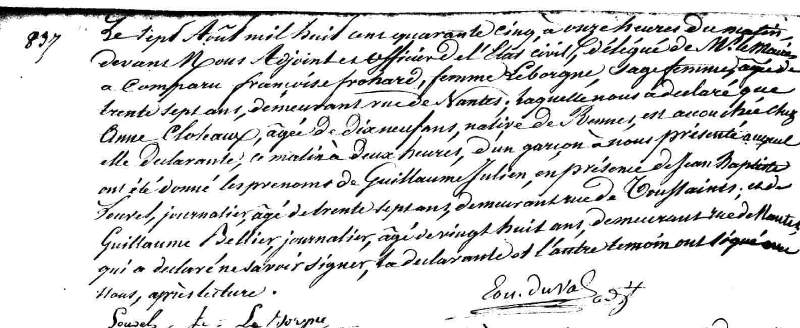 837
Le Sept Août mil huit cent quarante cinq, à onze heures du matin,
devant Nous Adjoint et Officier de l'Etat civil, délégué de Mr le Maire
a Comparu françoise frohard, femme Leborgne, Sage femme, âgée de
trente sept ans, demeurant rue de Nantes; laquelle nous a déclaré que
Anne Cloteaux, âgée de dix neuf ans, native de Rennes, est accouchée chez
elle déclarante, ce matin à deux heures, d'un garçon à nous présenté auquel
ont été donné les prenoms de Guillaume Julien, en présence de Jean Baptiste
Louvel, journalier, âgé de trente sept ans, demeurant rue de Toussaints, et de
Guillaume Bellier, journalier, âgé de vingt huit ans, demeurant rue de Nantes,
qui a declaré ne savoir signer, la declarante et l'autre temoin ont signé avec
Nous, après lecture.
Edu. duVal adjt
Louvel fe Le Borgne